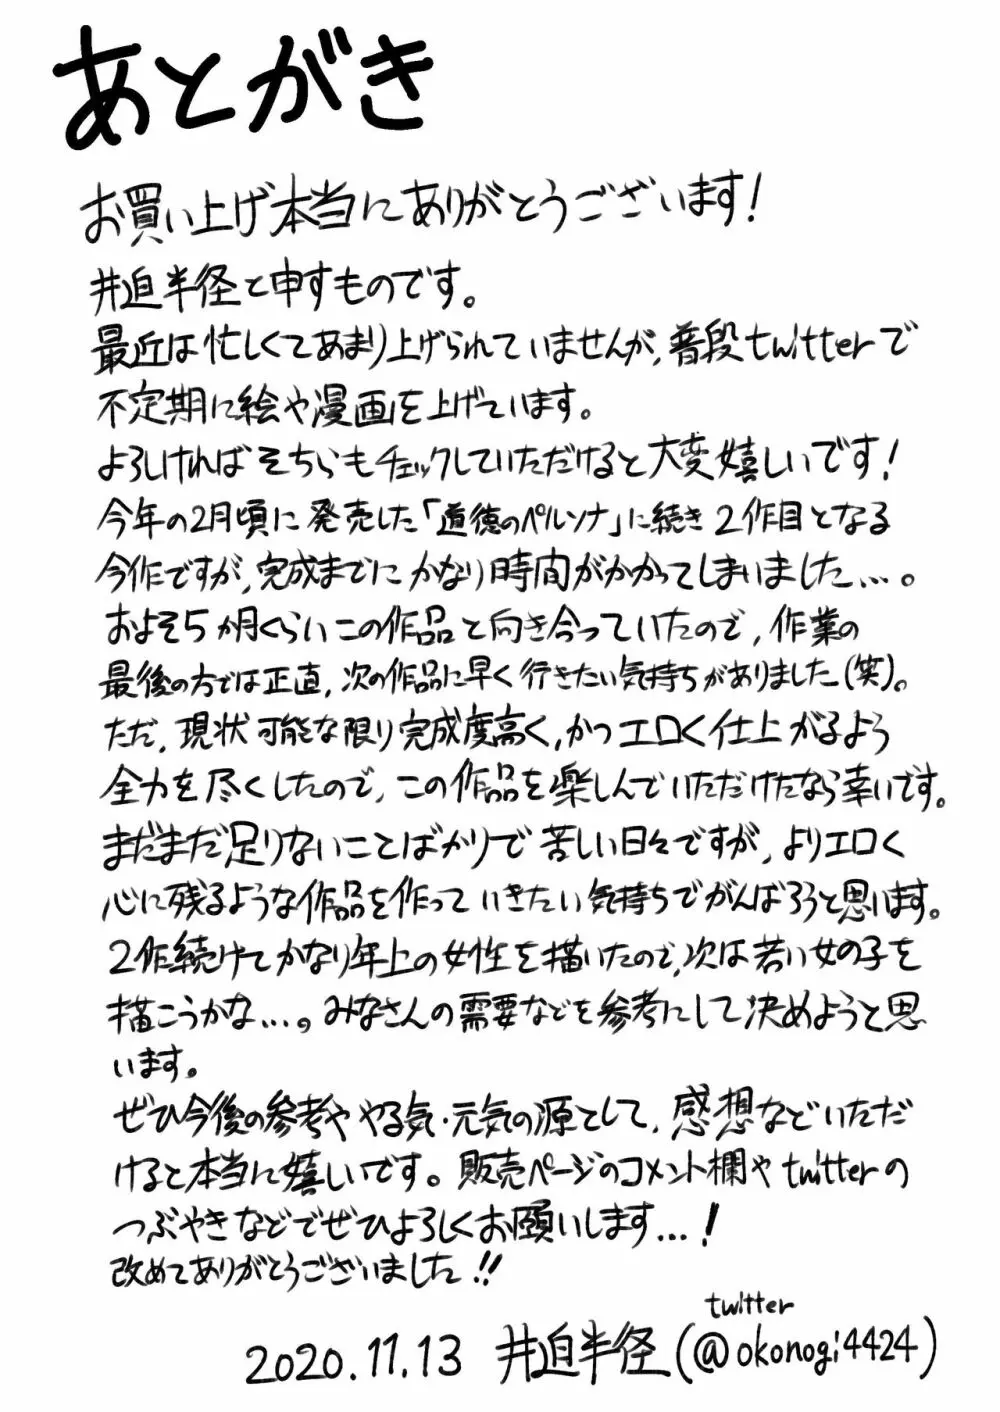 あとがき
お買い上げ本当にありがとうございます!
井迫半径と申すものです。
最近は忙しくてあまり上げられていませんが、普段twitterで
不定期に絵や漫画を上げています。
よろしければそちらもチェックしていただけると大変嬉しいです!
今年の2月頃に発売した「道徳のペルソナ」に続き2作目となる
今作ですが、完成までにかなり時間がかかってしまいました…。
およそ5か月くらいこの作品と向き合っていたので、作業の
最後の方では正直、次の作品に早く行きたい気持ちがありました(笑)。
ただ、現状可能な限り完成度高く、かつエロく仕上がるよう
全力を尽くしたので、この作品を楽しんでいただけたなら幸いです。
まだまだ足りないことばかりで苦しい日々ですが、よりエロく
心に残るような作品を作っていきたい気持ちでがんばろうと思います。
2作続けてかなり年上の女性を描いたので、次は若い女の子を
描こうかな…。みなさんの需要などを参考にして決めようと思
います。
ぜひ今後の参考ややる気・元気の源として、感想などいただ
けると本当に嬉しいです。販売ページのコメント欄やtwitterの
つぶやきなどでぜひよろしくお願いします…!
改めてありがとうございました!!
twitter
2020.11.13 井迫半径(@okonogi4424)